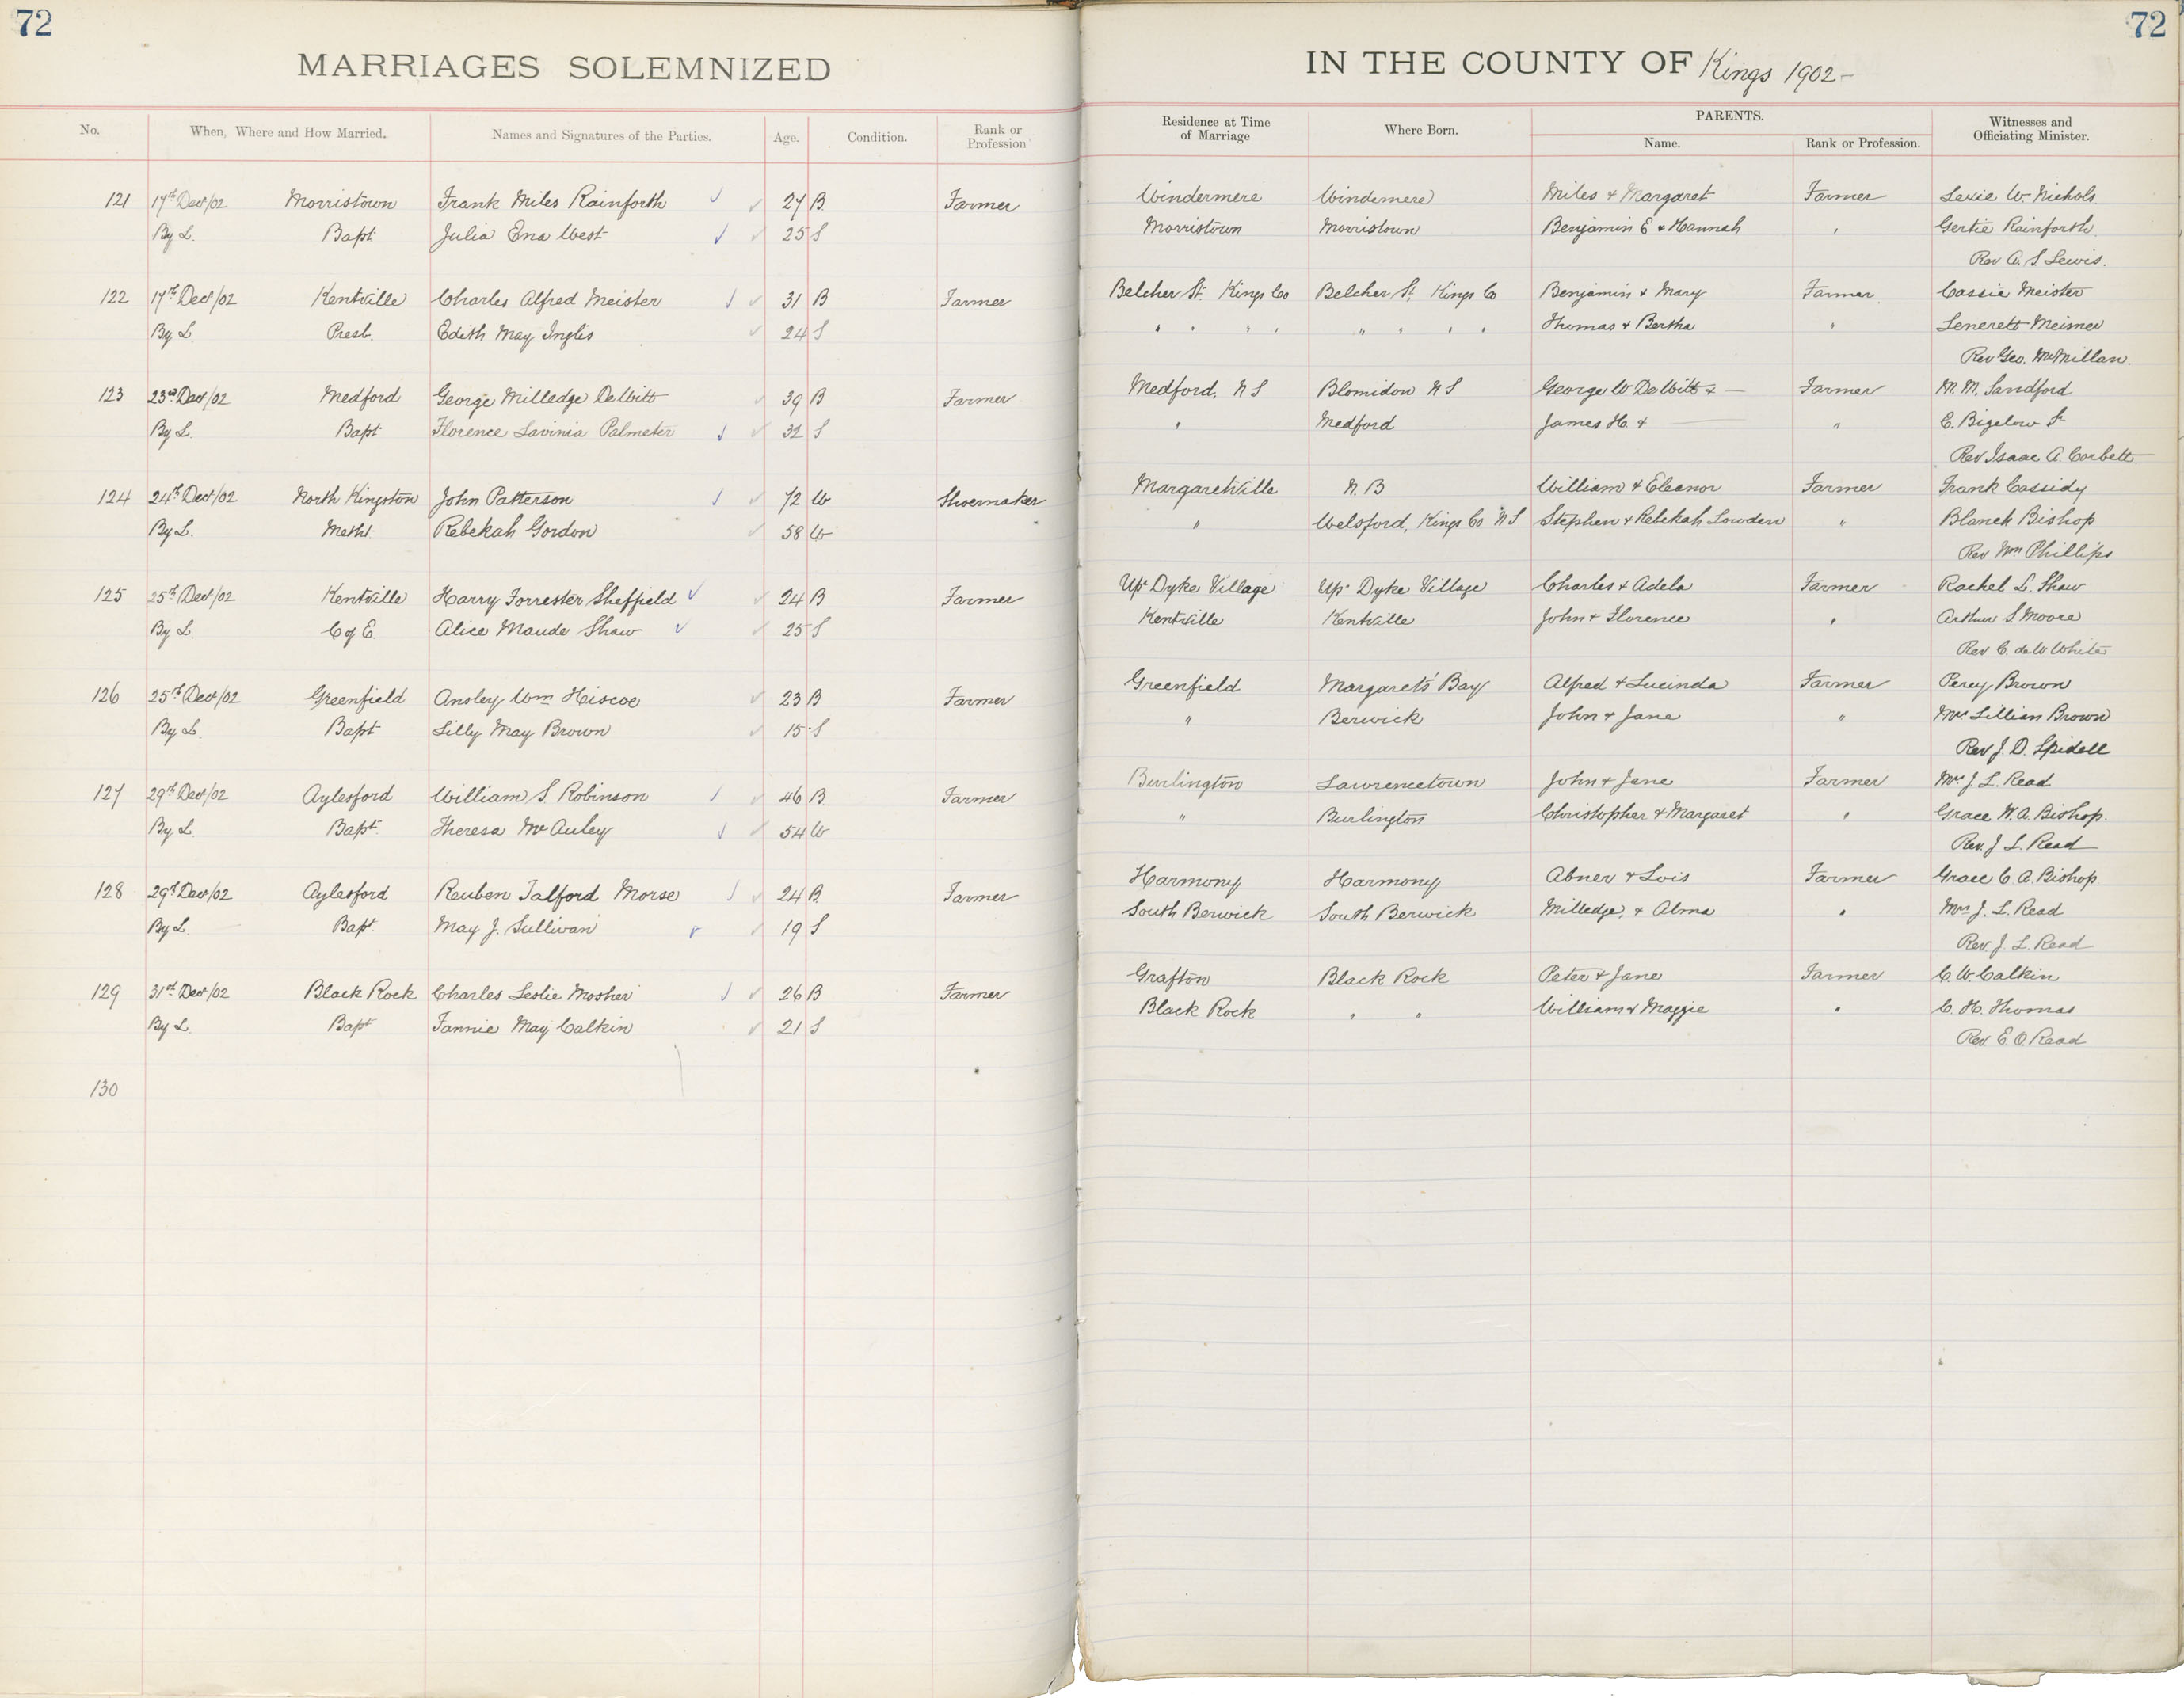 72
72
MARRIAGES SOLEMNIZED IN THE COUNTY OF Kings 1902-
No. When, Where and How Married. Names and Signatures of the Parties. Age. Condition. Rank or Profession Residence at Time of Marriage Where Born. PARENTS. Name. Rank or Profession. Witnesses and Officiating Minister.
121 17th Dec/02 Morristown Frank Miles Rainforth 27 B Farmer Windermere Windermere Miles & Margaret Farmer Lexie W. Nichols
By L. Bapt Julia Ena West 25 S Morristown Morristown Benjamin E & Hannah " Gertie Rainforth
Rev A. S Lewis.
122 17th Dec/02 Kentville Charles Alfred Meister 31 B Farmer Belcher St. Kings Co Belcher St. Kings Co Benjamin & Mary Farmer Cassie Meister
By L. Presb. Edith May Inglis 24 S " " " " " " " " Thomas & Bertha " Lenerett Meisner
Rev Geo. McMillan.
123 23rd Dec/02 Medford George Milledge DeWitt 39 B Farmer Medford, N S Blomidon N S George W. DeWitt & — Farmer M. M. Sandford
By L. Bapt Florence Lavinia Palmeter 32 S " Medford James H. & — " E. Bigelow Sr
Rev Isaac A. Corbett
124 24th Dec/02 North Kingston John Patterson 72 W Shoemaker Margaretville N. B William & Eleanor Farmer Frank Cassidy
By L. Meth. Rebekah Gordon 58 W " Welsford, Kings Co N S Stephen & Rebekah Lowden " Blanch Bishop
Rev Wm Phillips
125 25th Dec/02 Kentville Harry Forrester Sheffield 24 B Farmer Upr Dyke Village Upr Dyke Village Charles & Adela Farmer Rachel L. Shaw
By L. C of E. Alice Maude Shaw 25 S Kentville Kentville John & Florence " Arthur S Moore
Rev C. de W White
126 25th Dec/02 Greenfield Ansley Wm Hiscoe 23 B Farmer Greenfield Margarets' Bay Alfred & Lucinda Farmer Percy Brown
By L. Bapt Lilly May Brown 15 S " Berwick John & Jane " Mrs Lillian Brown
Rev J. D. Spidell
127 29th Dec/02 Aylesford William S. Robinson 46 B Farmer Burlington Lawrencetown John & Jane Farmer Mrs J. L. Read
By L. Bapt. Theresa McAuley 54 W " Burlington Christopher & Margaret " Grace W. A. Bishop.
Rev. J L. Read
128 29th Dec/02 Aylesford Reuben Talford Morse 24 B Farmer Harmony Harmony Abner & Lois Farmer Grace C. A. Bishop.
By L. Bapt. May J. Sullivan 19 S South Berwick South Berwick Milledge, & Alma " Mrs J. L. Read
Rev. J. L. Read
129 31st Dec/02 Black Rock Charles Leslie Mosher 26 B Farmer Grafton Black Rock Peter & Jane Farmer C. W. Calkin
By L. Bapt Fannie May Calkin 21 S Black Rock " " William & Maggie " C. H. Thomas
Rev E. O. Read
130